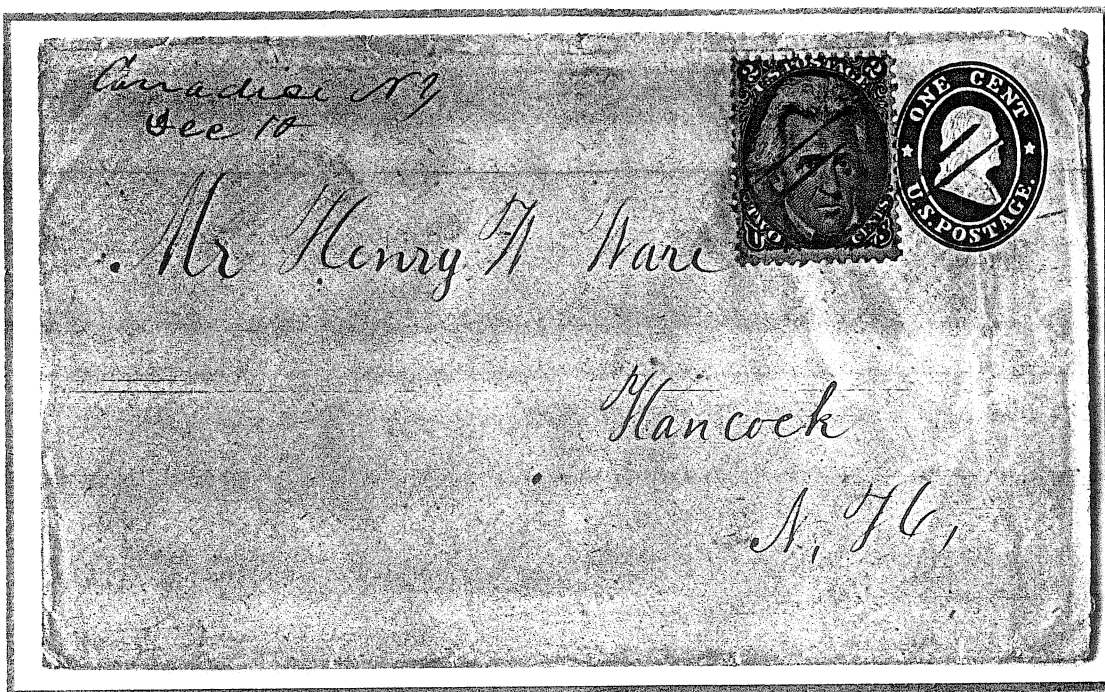 Canadice NY
Dec 10
2 U.S. POSTAGE 2
TWO CENTS
U S
ONE CENT
U.S. POSTAGE.
Mr Henry W Ware
Hancock
N, H,